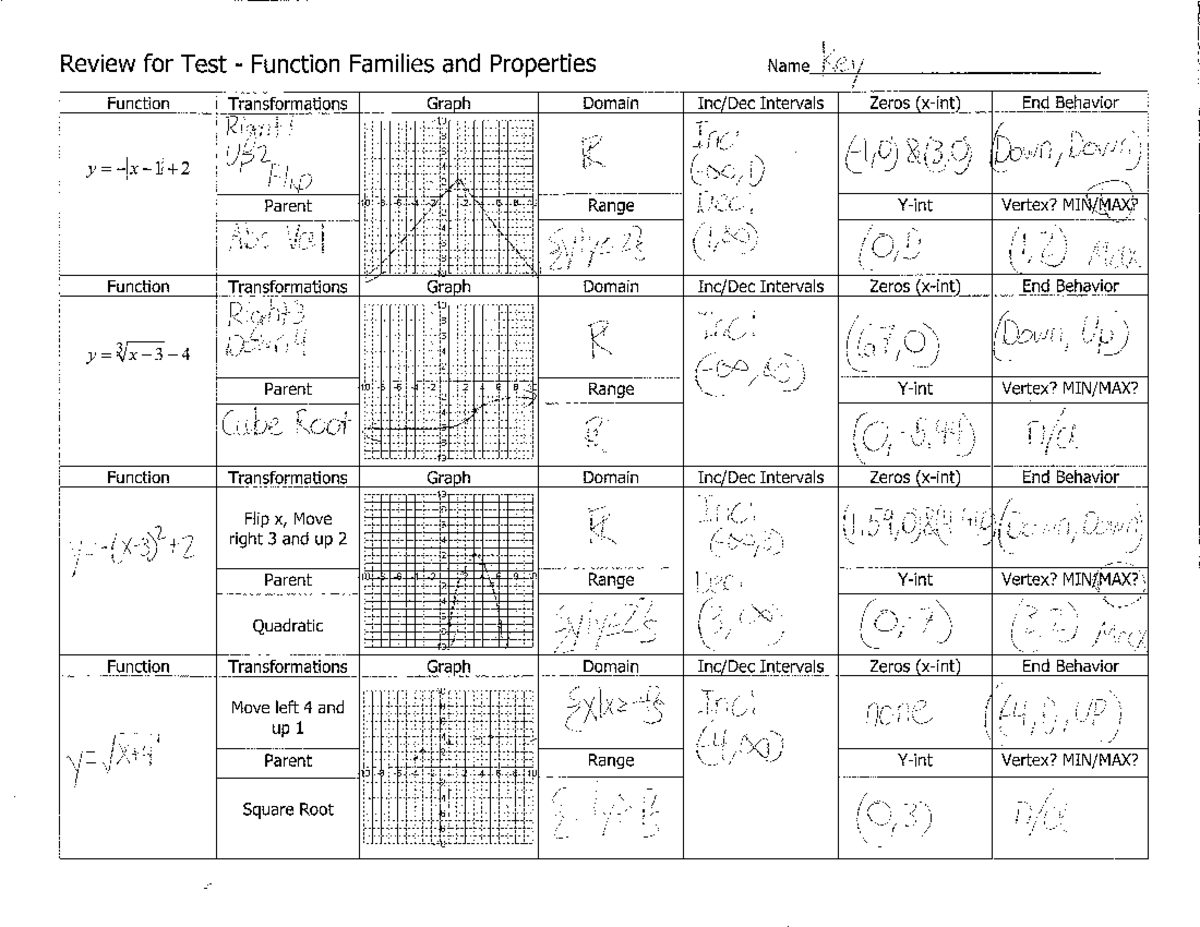 Review for Test - Function Families and Properties
Name Key
Function Transformations Graph Domain Inc/Dec Intervals Zeros (x-int) End Behavior
y = -|x - 1| + 2
Right 1
Up 2
Flip
R
Inc:
(-∞, 1)
Dec:
(1, ∞)
(-1,0) & (3,0)
(Down, Down)
Parent Range Y-int Vertex? MIN/MAX?
Abs Val
{y|y≤2}
(0,1)
(1,2) Max
Function Transformations Graph Domain Inc/Dec Intervals Zeros (x-int) End Behavior
y = ∛(x - 3) - 4
Right 3
Down 4
R
Inc:
(-∞, ∞)
(67,0)
(Down, Up)
Parent Range Y-int Vertex? MIN/MAX?
Cube Root
R
(0,-5.44)
n/a
Function Transformations Graph Domain Inc/Dec Intervals Zeros (x-int) End Behavior
y=-(x-3)²+2
Flip x, Move
right 3 and up 2
R
Inc:
(-∞,3)
Dec:
(3, ∞)
(1.59,0)&(4.41,0)
(Down, Down)
Parent Range Y-int Vertex? MIN/MAX?
Quadratic
{y|y≤2}
(0,-7)
(3,2) Max
Function Transformations Graph Domain Inc/Dec Intervals Zeros (x-int) End Behavior
y=√x+4
Move left 4 and
up 1
{x|x≥-4}
Inc:
(-4,∞)
none
(-4,1), UP)
Parent Range Y-int Vertex? MIN/MAX?
Square Root
{y|y≥1}
(0,3)
n/a